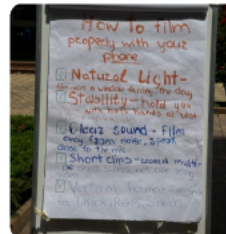 How to film
properly with your
phone
Natural Light-
a window during the day
Stability-hold you
with both hands or rest
Clear sound - film
away from noise, speak
close to the mic
Short clips-
Vertical format